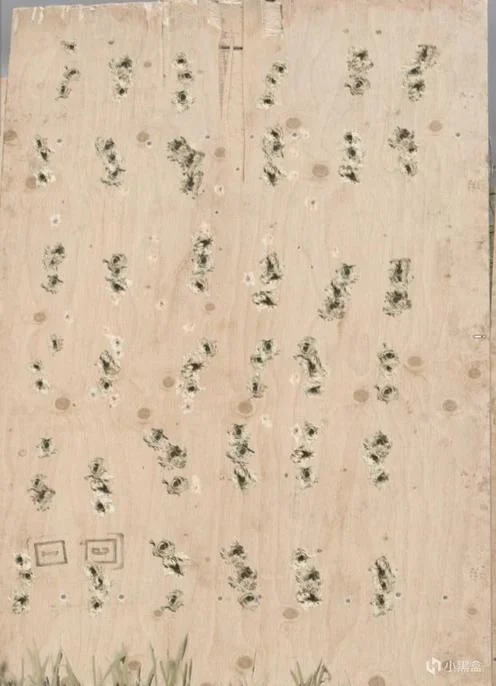 小黑盒